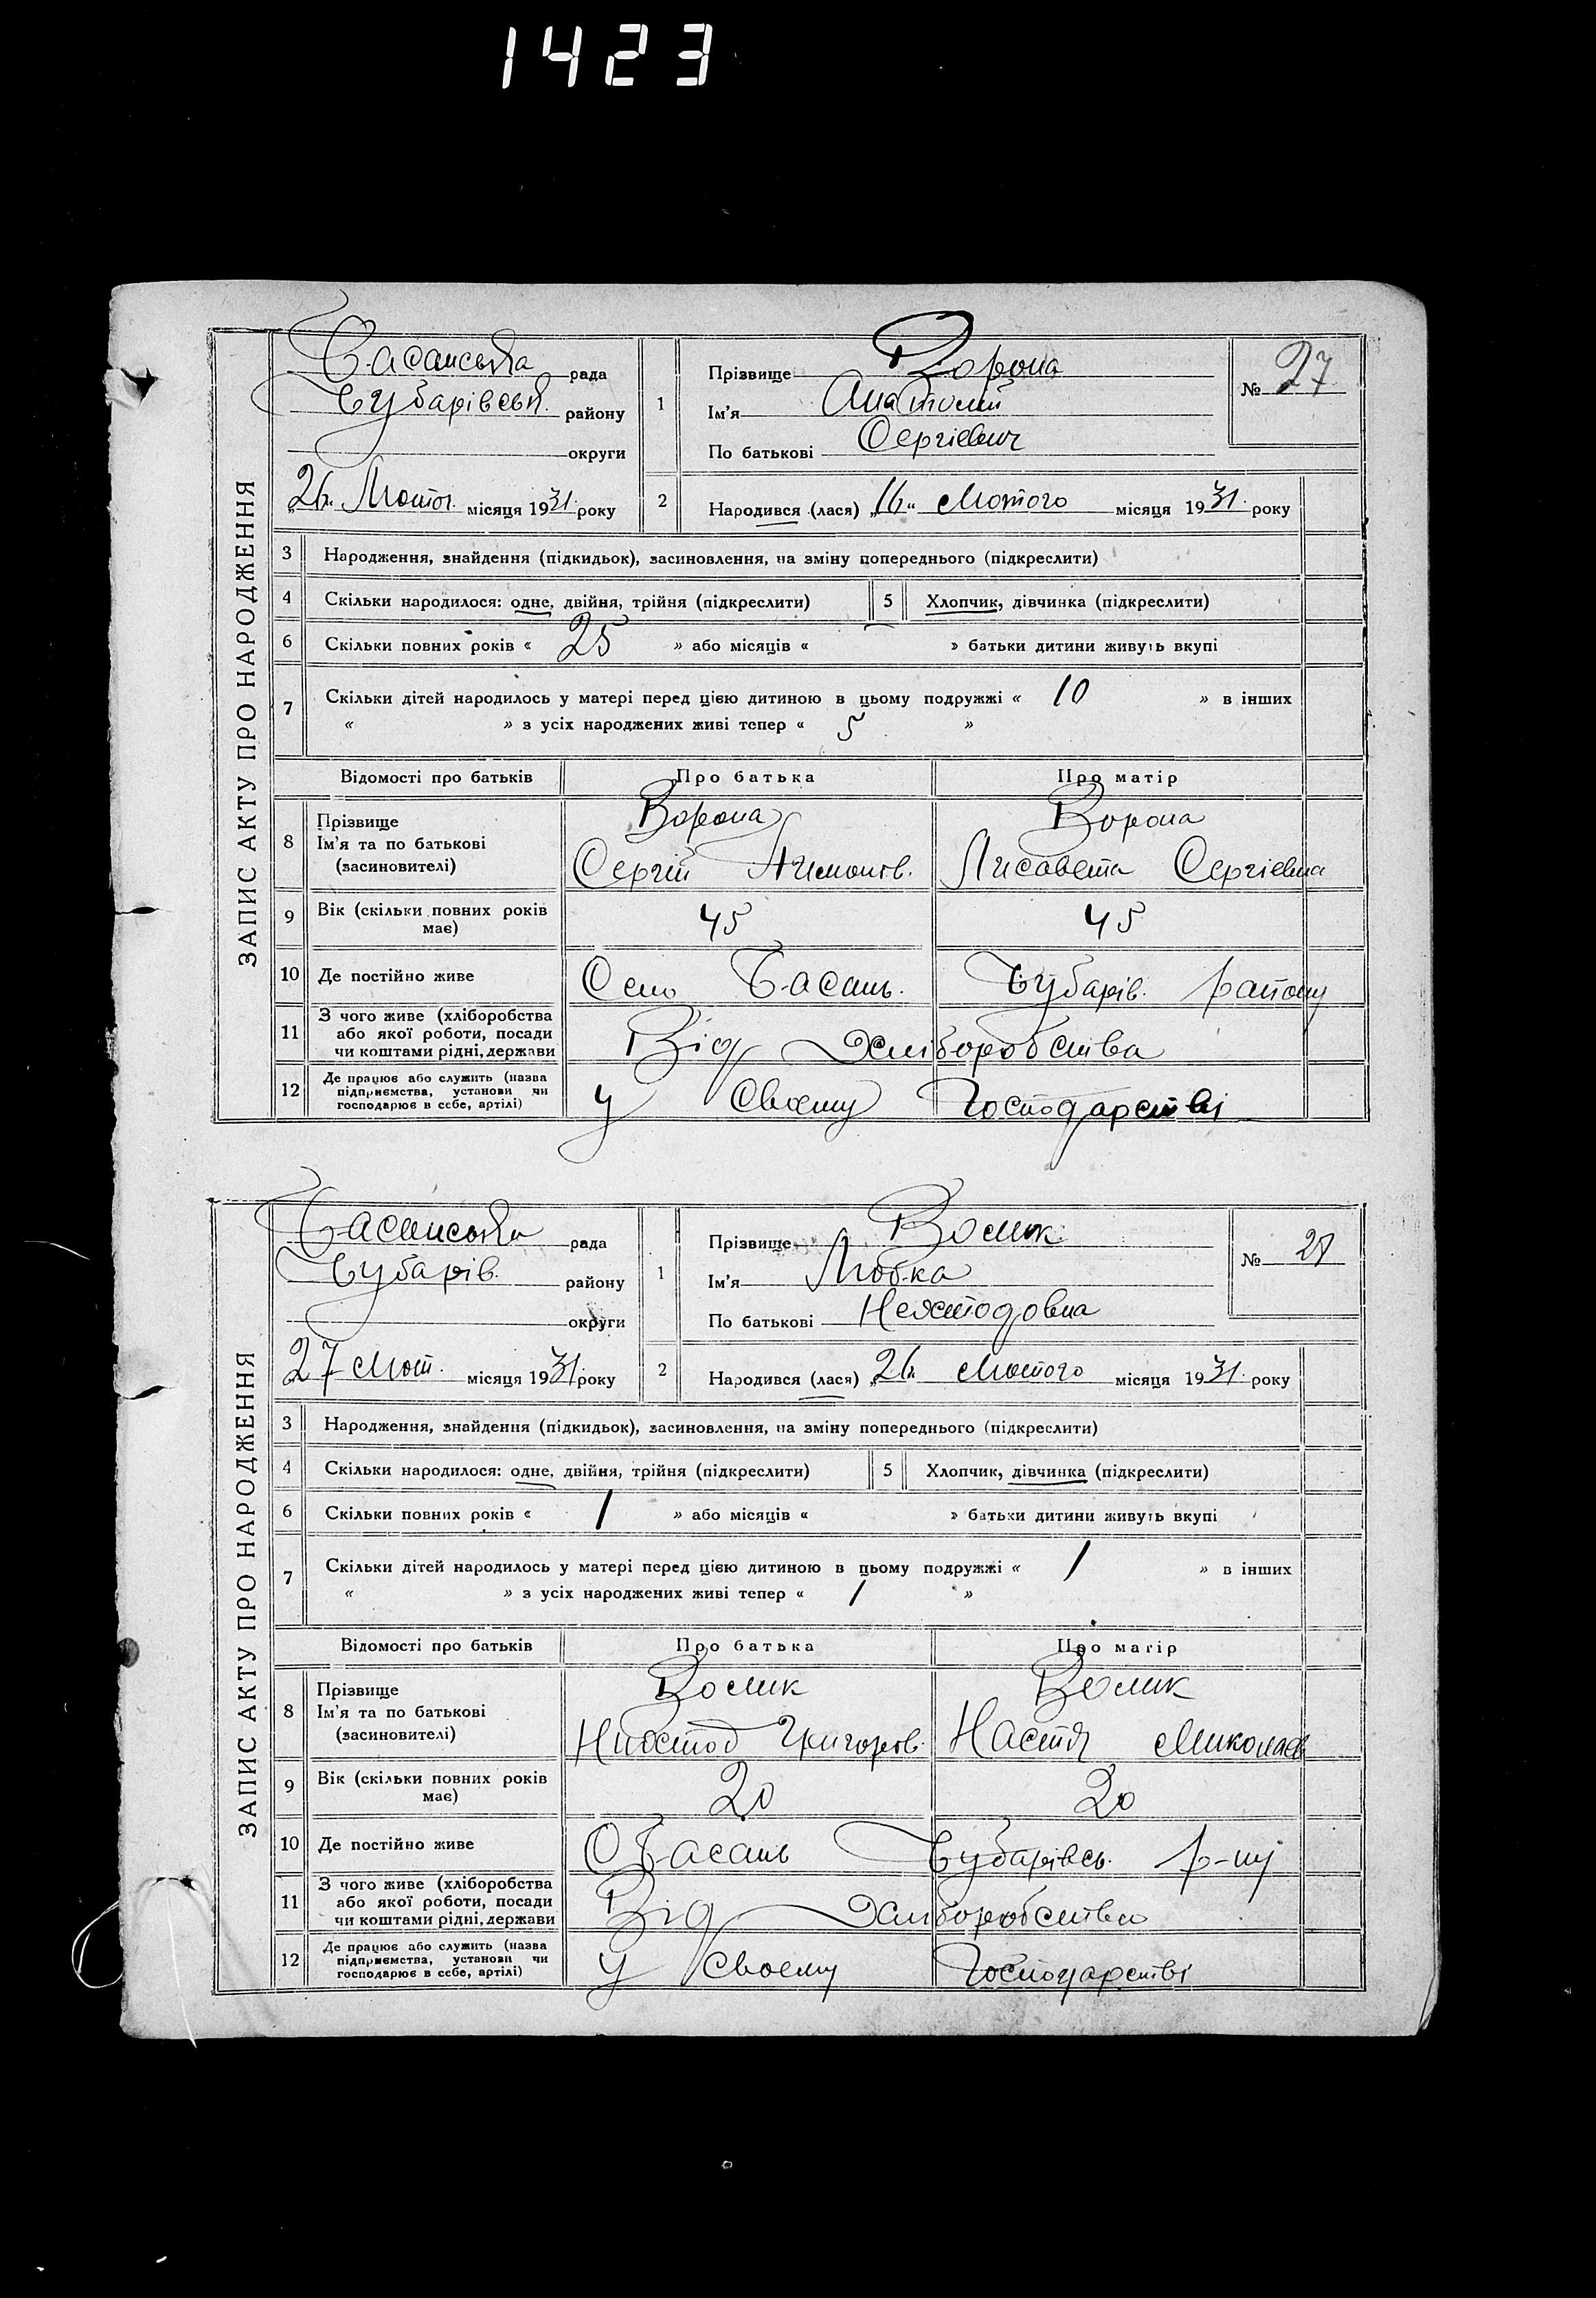 1423
ЗАПИС АКТУ ПРО НАРОДЖЕННЯ
Басанська рада
Чубарівськ. району
округи
„26“ Лютог. місяця 1931 року
1
Прізвище Ворона
Ім'я Анатолій
По батькові Сергіевич
№ 27
2
Народився (лася) „16“ Лютого місяця 1931 року
3 Народження, знайдення (підкидьок), засиновлення, на зміну попереднього (підкреслити)
4 Скільки народилося: одне, двійня, трійня (підкреслити) 5 Хлопчик, дівчинка (підкреслити)
6 Скільки повних років « 25 » або місяців « » батьки дитини живуть вкупі
7 Скільки дітей народилось у матері перед цією дитиною в цьому подружжі « 10 » в інших
« » з усіх народжених живі тепер « 5 »
Відомості про батьків Про батька Про матір
8 Прізвище
Ім'я та по батькові
(засиновителі)
Ворона Ворона
Сергій Лисавета Сергіевна
9 Вік (скільки повних років має) 45 45
10 Де постійно живе Село Басань. Чубарів. району
11 З чого живе (хліборобства
або якої роботи, посади
чи коштами рідні, держави
Від Хліборобства
12 Де працює або служить (назва
підприємства, установи чи
господарює в себе, артілі)
У Своему Господарстві
ЗАПИС АКТУ ПРО НАРОДЖЕННЯ
Басанська рада
Чубарів. району
округи
27 Лют. місяця 1931 року
1
Прізвище Волик
Ім'я Любка
По батькові
№ 28
2
Народився (лася) „26 Лютого місяця 1931 року
3 Народження, знайдення (підкидьок), засиновлення, на зміну попереднього (підкреслити)
4 Скільки народилося: одне, двійня, трійня (підкреслити) 5 Хлопчик, дівчинка (підкреслити)
6 Скільки повних років « 1 » або місяців « » батьки дитини живуть вкупі
7 Скільки дітей народилось у матері перед цією дитиною в цьому подружжі « 1 » в інших
« » з усіх народжених живі тепер « 1 »
Відомості про батьків Про батька Про матір
8 Прізвище
Ім'я та по батькові
(засиновителі)
Волик Волик
Григоров. Настя Миколаєв
9 Вік (скільки повних років має) 20 20
10 Де постійно живе С Басань Чубарівсь. р-ну
11 З чого живе (хліборобства
або якої роботи, посади
чи коштами рідні, держави
Від Хліборобства
12 Де працює або служить (назва
підприємства, установи чи
господарює в себе, артілі)
У Своему Господарстві